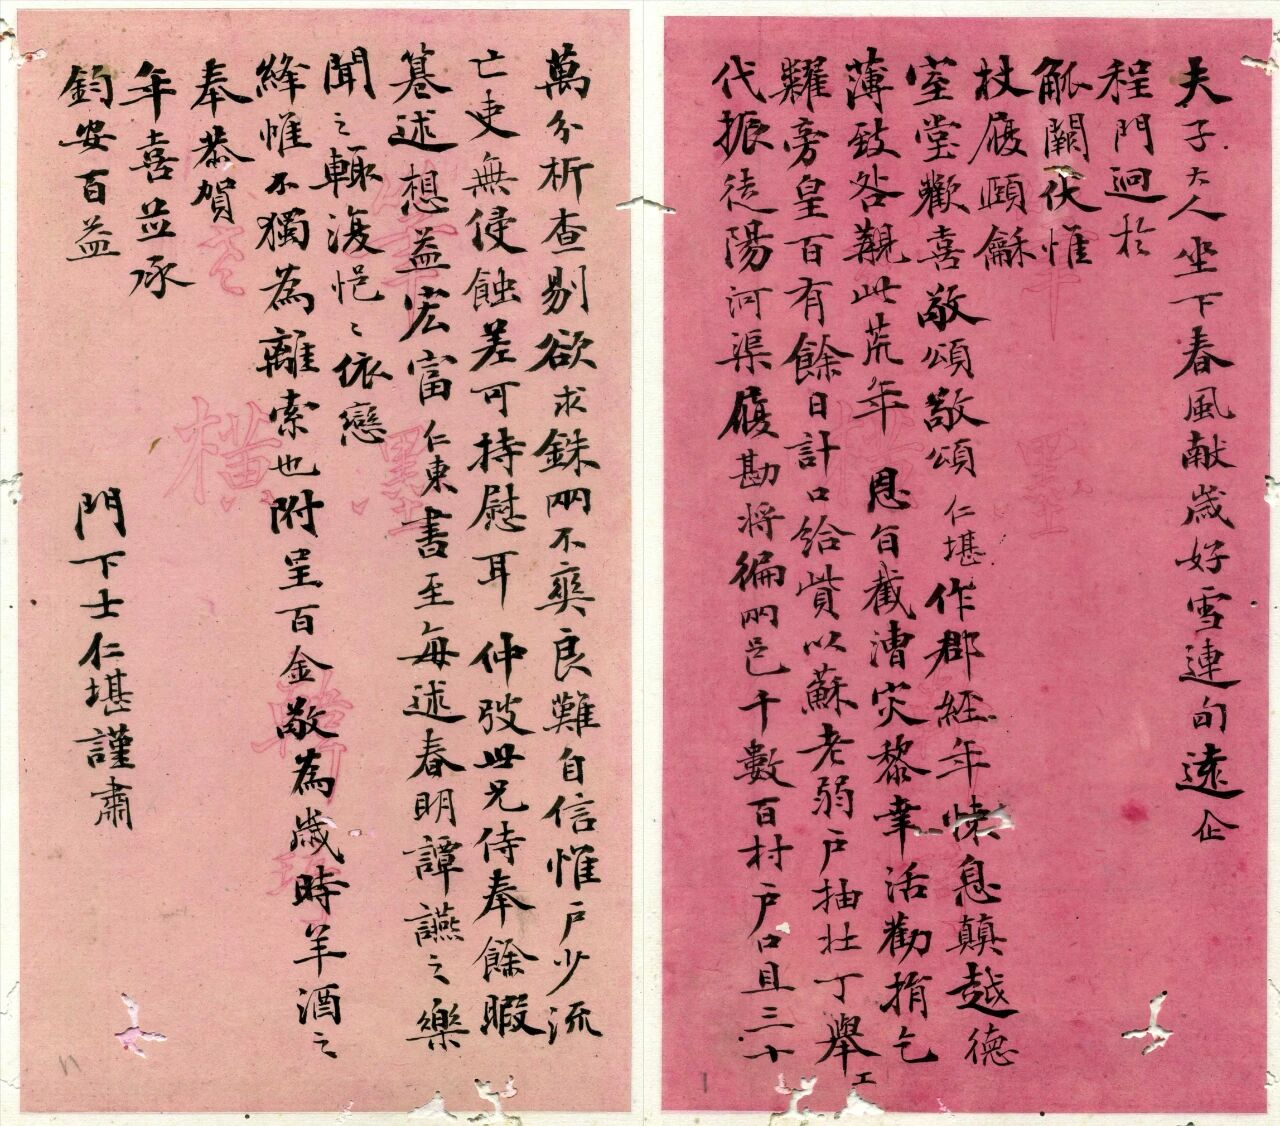 夫子大人坐下春風献歲好雪連旬遠企
程門迥於
觚闕伏惟
杖履頤龢
室堂歡喜敬頌敬頌仁堪作郡經年悚息顛越德
薄致咎覯此荒年恩旨截漕灾黎幸活勸捐乞
糶旁皇百有餘日計口給貲以蘇老弱戶抽壯丁舉工
代振徒陽河渠履勘將徧兩邑千數百村戶口且三十
萬分析查剔欲求銖兩不爽良難自信惟戶少流
亡吏無侵蝕差可持慰耳仲弢世兄侍奉餘暇
纂述想益宏富仁東書至每述春明譚讌之樂
聞之輒復悒々依戀
絳惟不獨為離索也附呈百金敬為歲時羊酒之
奉恭賀
年喜並承
鈞安百益
門下士仁堪謹肅